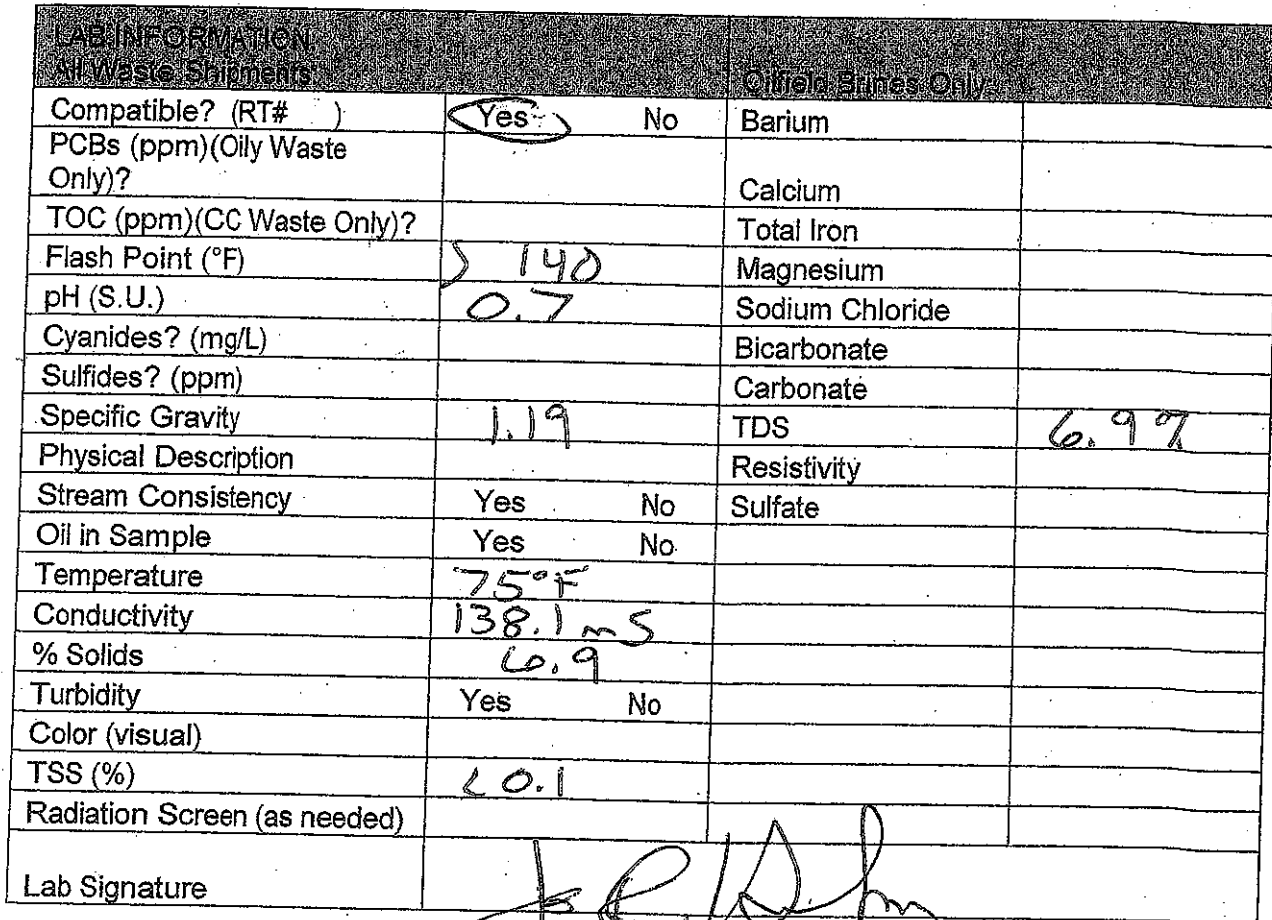 LAB INFORMATION
All Waste Shipments Oilfield Brines Only
Compatible? (RT# ) Yes No Barium
PCBs (ppm)(Oily Waste
Only)? Calcium
TOC (ppm)(CC Waste Only)? Total Iron
Flash Point (°F) > 140 Magnesium
pH (S.U.) 0.7 Sodium Chloride
Cyanides? (mg/L) Bicarbonate
Sulfides? (ppm) Carbonate
Specific Gravity 1.19 TDS 6.9%
Physical Description Resistivity
Stream Consistency Yes No Sulfate
Oil in Sample Yes No
Temperature 75°F
Conductivity 138.1 mS
% Solids 6.9
Turbidity Yes No
Color (visual)
TSS (%) < 0.1
Radiation Screen (as needed)
Lab Signature